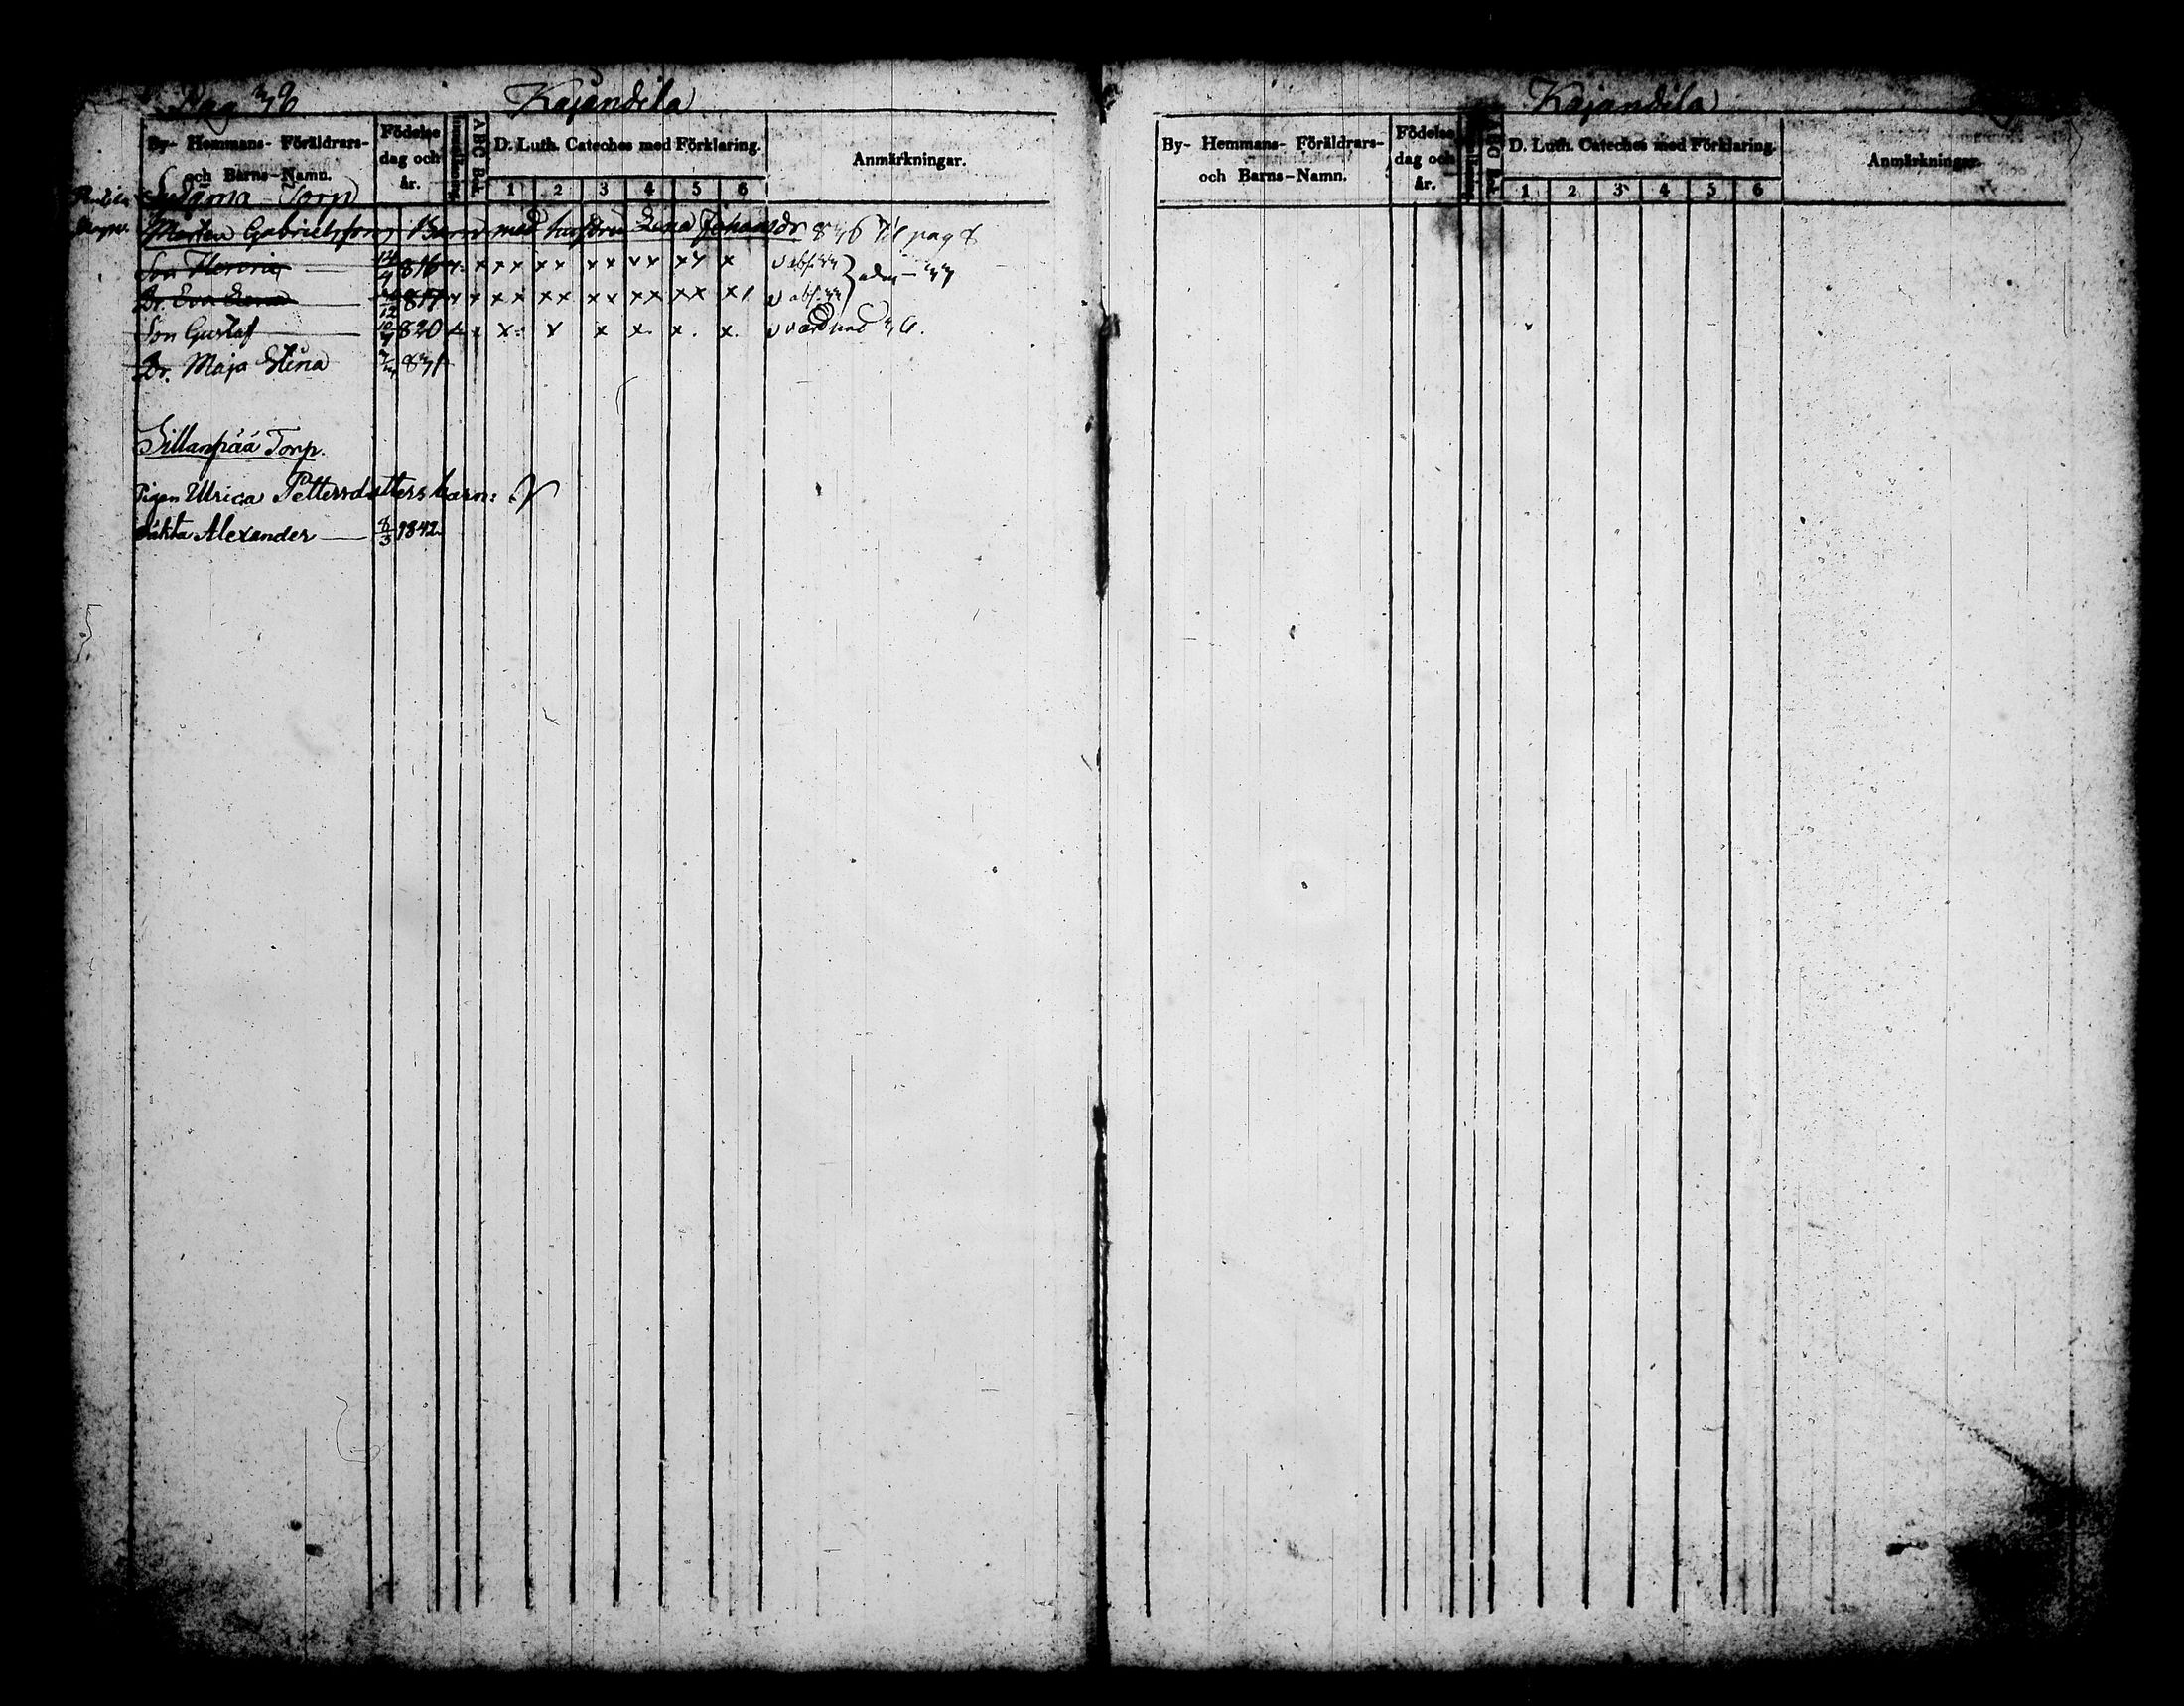 Pag 36 Kajandila
By- Hemmans- Föräldrars- och Barns-Namn.
Födelse dag och år.
ABC Bok.
D. Luth. Cateches med Förklaring.
1 2 3 4 5 6
Anmärkningar.
Torp
Mårten Gabrielsson Barn med hustru Lena Johansdr 836 Til pag 8
Son Henric 816 x x x x x x x x x x x x
Dr. Eva Lena 12 817 x x x x x x x x x x x x
Son Gustaf 10 820 x x x x x x
Dr. Maja Stina 831
Sillanpää Torp.
Pigan Ulrica Pettersdotters barn:
oäkta Alexander — 8/3 1842.
Kajandila
By- Hemmans- Föräldrars- och Barns-Namn.
Födelse dag och år.
ABC Bok.
D. Luth. Cateches med Förklaring.
1 2 3 4 5 6
Anmärkningar.